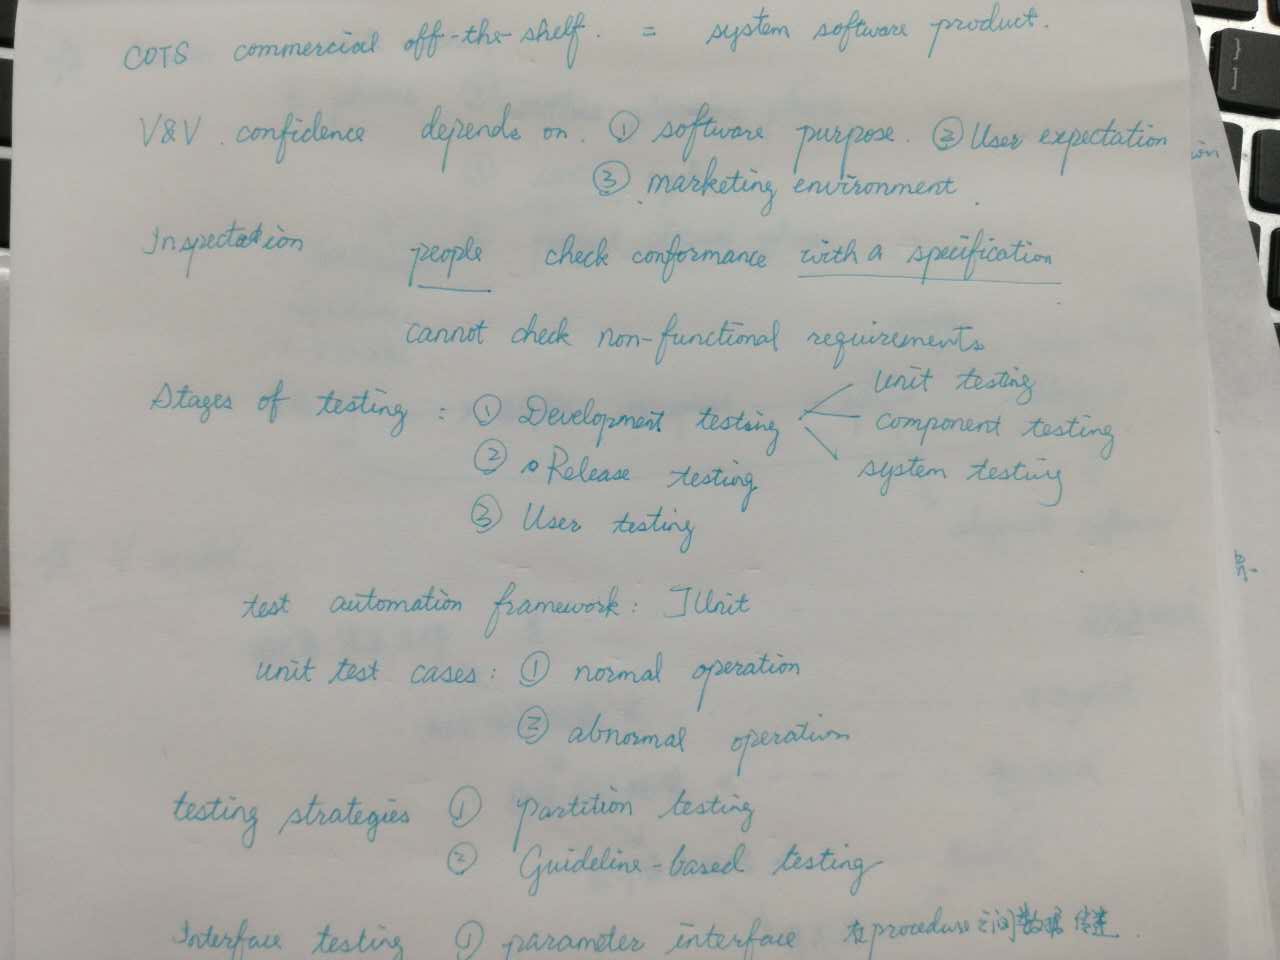 COTS commercial off-the-shelf. = system software product.
V&V. confidence depends on. ① software purpose. ② User expectation
③ marketing environment.
Inspectation people check conformance with a specification
cannot check non-functional requirements
Stages of testing: ① Development testing unit testing
component testing
② Release testing system testing
③ User testing
test automation framework: JUnit
unit test cases: ① normal operation
② abnormal operation
testing strategies ① partition testing
② Guideline-based testing
Interface testing ① parameter interface 在procedure之间数据传递.